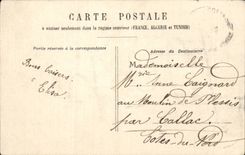 CARTE POSTALE
à utiliser seulement dans le régime intérieur (FRANCE, ALGÉRIE et TUNISIE)
Partie réservée à la correspondance
Adresse du Destinataire
Bons baisers
Elisa
Mademoiselle
au Moulin de
par Callac
Côtes du Nord